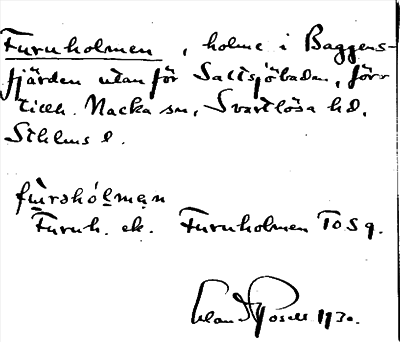 Furuholmen, holme i Baggens-
fjärden utan för Saltsjöbaden, förr
tillh. Nacka sn, Svartlösa hd,
Sthlms l.
Furuh. ek. Furuholmen ToSq.
1930.